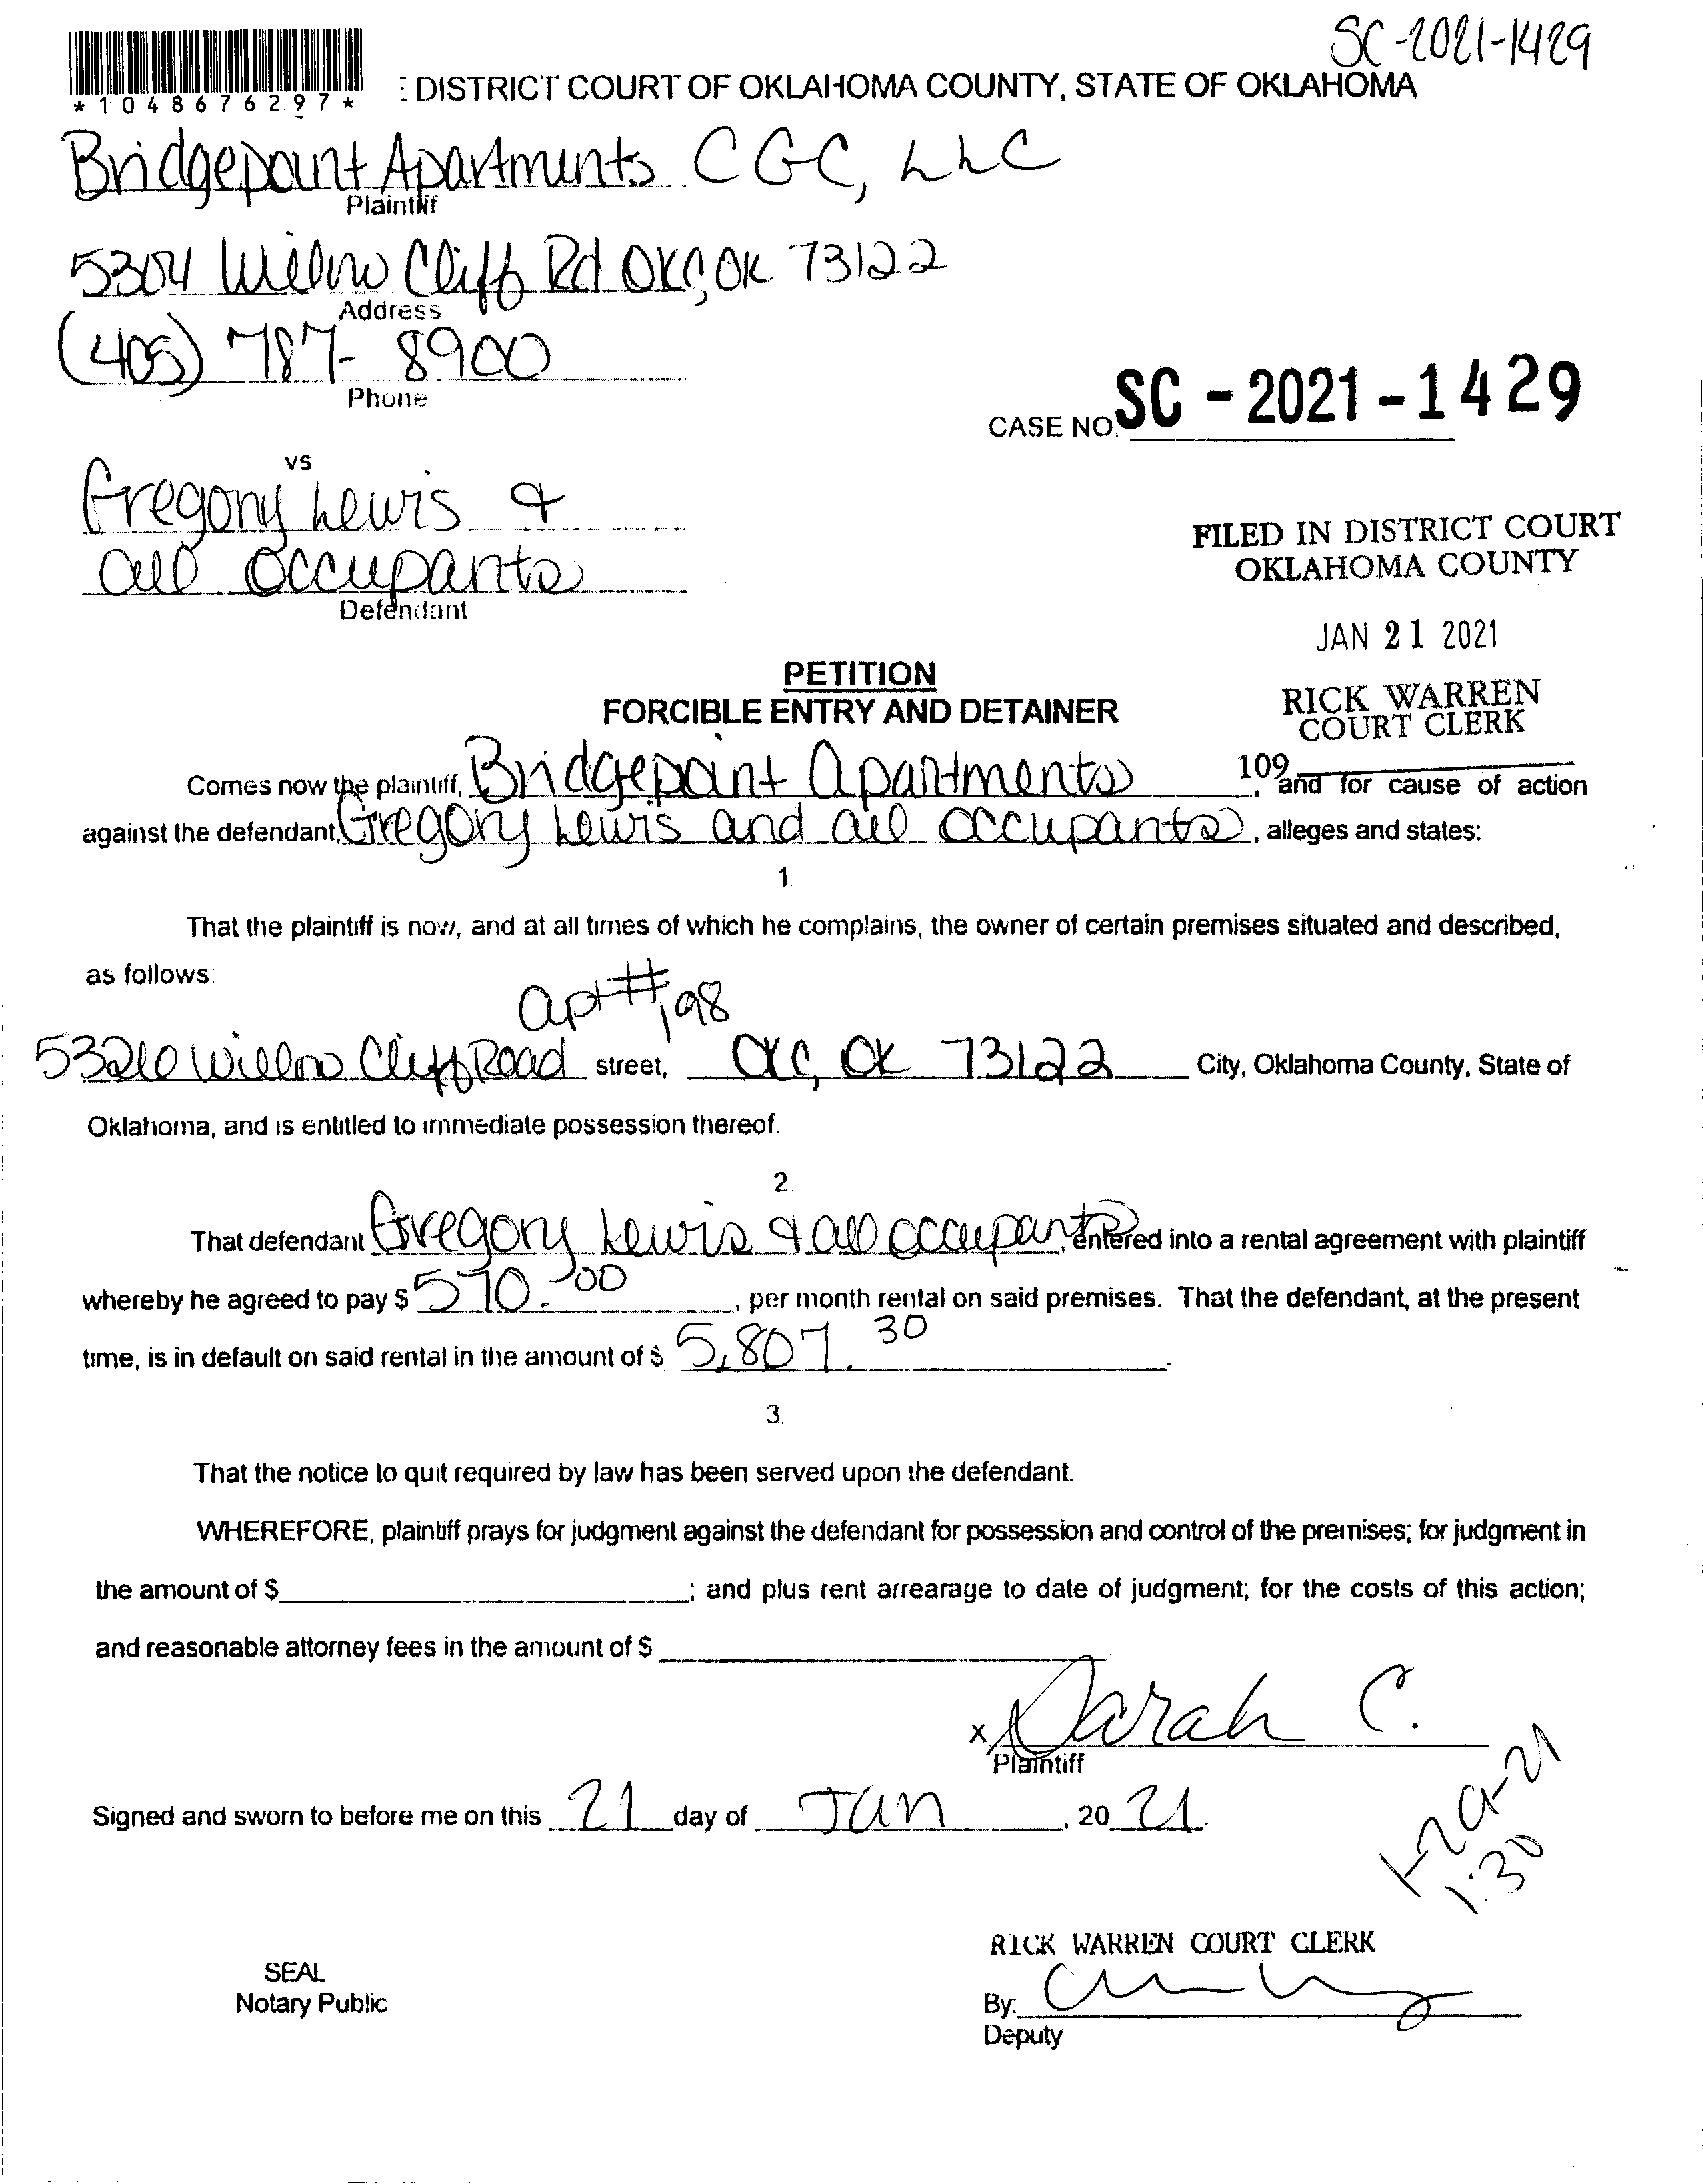 SC-2021-1429
*1048676297*
: DISTRICT COURT OF OKLAHOMA COUNTY, STATE OF OKLAHOMA
Bridgepoint Apartments CGC, LLC
Plaintiff
5304 Willow Cliff Rd OKC, OK 73122
Address
(405) 787-8900
Phone
CASE NO. SC - 2021 - 1429
vs
Gregory Lewis &
all occupants
Defendant
FILED IN DISTRICT COURT
OKLAHOMA COUNTY
JAN 21 2021
RICK WARREN
COURT CLERK
109
PETITION
FORCIBLE ENTRY AND DETAINER
Comes now the plaintiff, Bridgepoint Apartments, and for cause of action
against the defendant, Gregory Lewis and all occupants, alleges and states:
1.
That the plaintiff is now, and at all times of which he complains, the owner of certain premises situated and described,
as follows:
apt #198
Willow Cliff Road street, OKC, OK 73122 City, Oklahoma County, State of
Oklahoma, and is entitled to immediate possession thereof.
2.
That defendant Gregory Lewis & all occupants, entered into a rental agreement with plaintiff
whereby he agreed to pay $ 570.00, per month rental on said premises. That the defendant, at the present
time, is in default on said rental in the amount of $ 5,807.30.
3.
That the notice to quit required by law has been served upon the defendant.
WHEREFORE, plaintiff prays for judgment against the defendant for possession and control of the premises; for judgment in
the amount of $ ; and plus rent arrearage to date of judgment; for the costs of this action;
and reasonable attorney fees in the amount of $
x Sarah C.
Plaintiff
Signed and sworn to before me on this 21 day of Jan, 20 21.
1-29-21
1:30
RICK WARREN COURT CLERK
SEAL
Notary Public
By:
Deputy